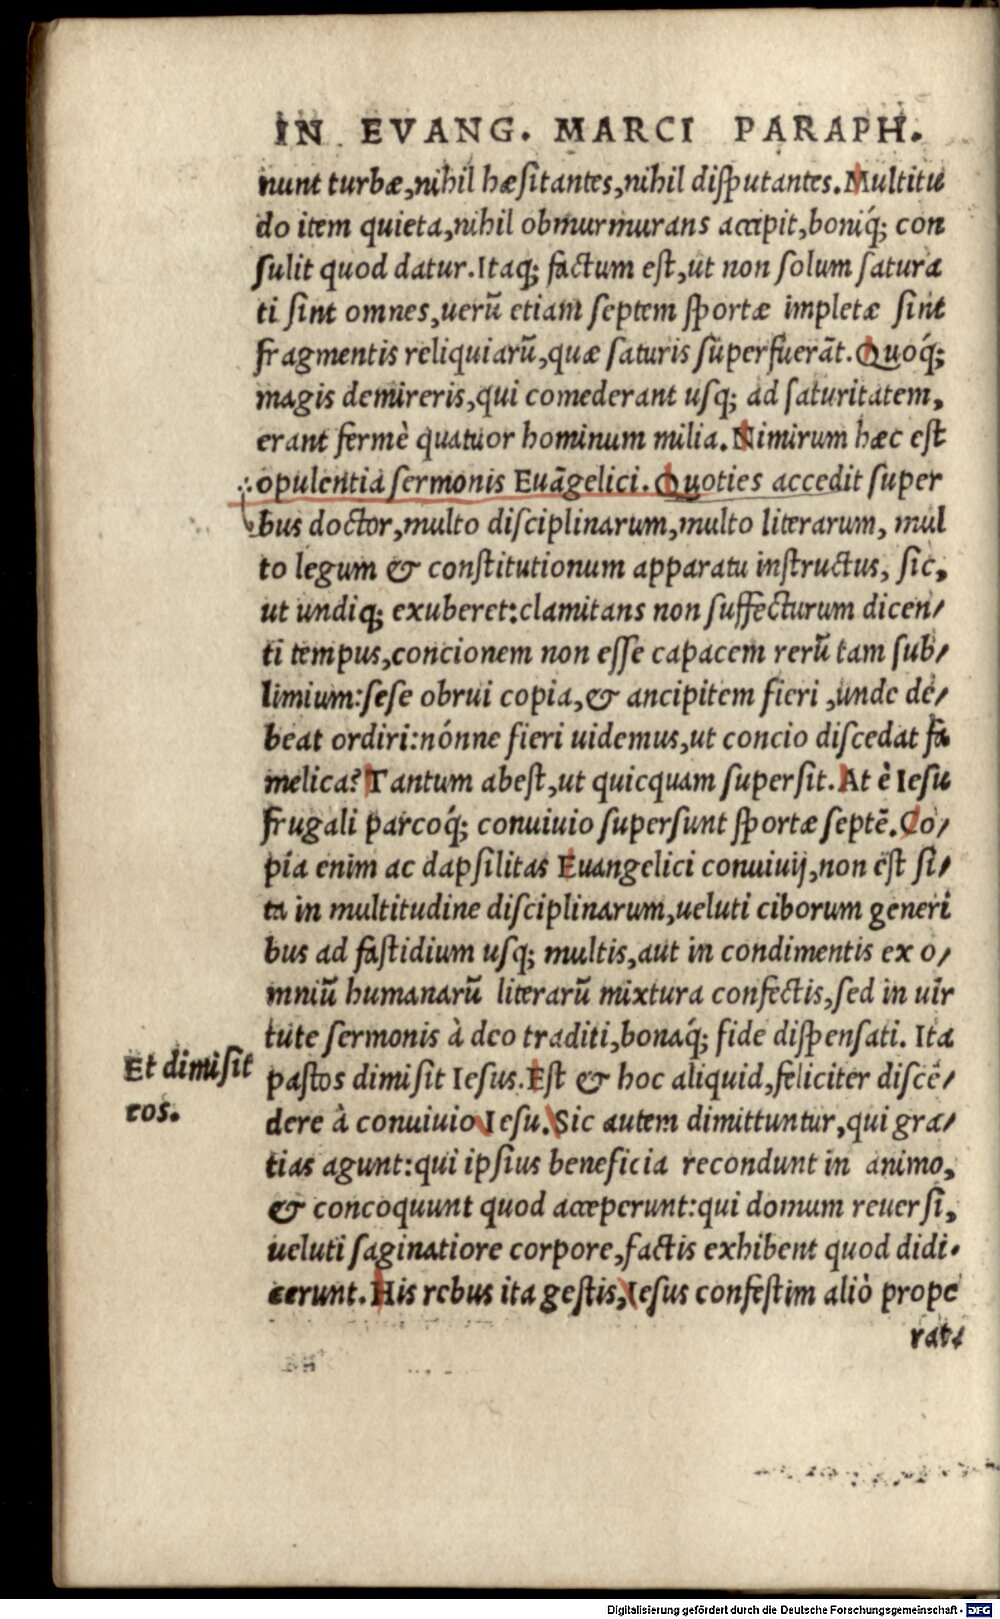 IN EVANG. MARCI PARAPH.
nunt turbæ, nihil hæsitantes, nihil disputantes. Multitu
do item quieta, nihil obmurmurans accipit, boniq́; con
sulit quod datur. Itaq; factum est, ut non solum satura
ti sint omnes, uerũ etiam septem sportæ impletæ sint
fragmentis reliquiarũ, quæ saturis superfuerãt. Quoq́;
magis demireris, qui comederant usq; ad saturitatem,
erant fermè quatuor hominum milia. Nimirum hæc est
opulentia sermonis Euãgelici. Quoties accedit super
bus doctor, multo disciplinarum, multo literarum, mul
to legum & constitutionum apparatu instructus, sic,
ut undiq; exuberet: clamitans non suffecturum dicen/
ti tempus, concionem non esse capacem rerũ tam sub/
limium: sese obrui copia, & ancipitem fieri, unde de/
beat ordiri: nónne fieri uidemus, ut concio discedat fa
melica? Tantum abest, ut quicquam supersit. At è Iesu
frugali parcoq́; conuiuio supersunt sportæ septẽ. Co/
pia enim ac dapsilitas Euangelici conuiuij, non est si/
ta in multitudine disciplinarum, ueluti ciborum generi
bus ad fastidium usq; multis, aut in condimentis ex o/
mniũ humanarũ literarũ mixtura confectis, sed in uir
tute sermonis à deo traditi, bonaq́; fide dispensati. Ita
Et dimisit
eos.
pastos dimisit Iesus. Est & hoc aliquid, feliciter discē/
dere à conuiuio Iesu. Sic autem dimittuntur, qui gra/
tias agunt: qui ipsius beneficia recondunt in animo,
& concoquunt quod acceperunt: qui domum reuersi,
ueluti saginatiore corpore, factis exhibent quod didi-
cerunt. His rebus ita gestis, Iesus confestim aliò prope
rat,
Digitalisierung gefördert durch die Deutsche Forschungsgemeinschaft - DFG